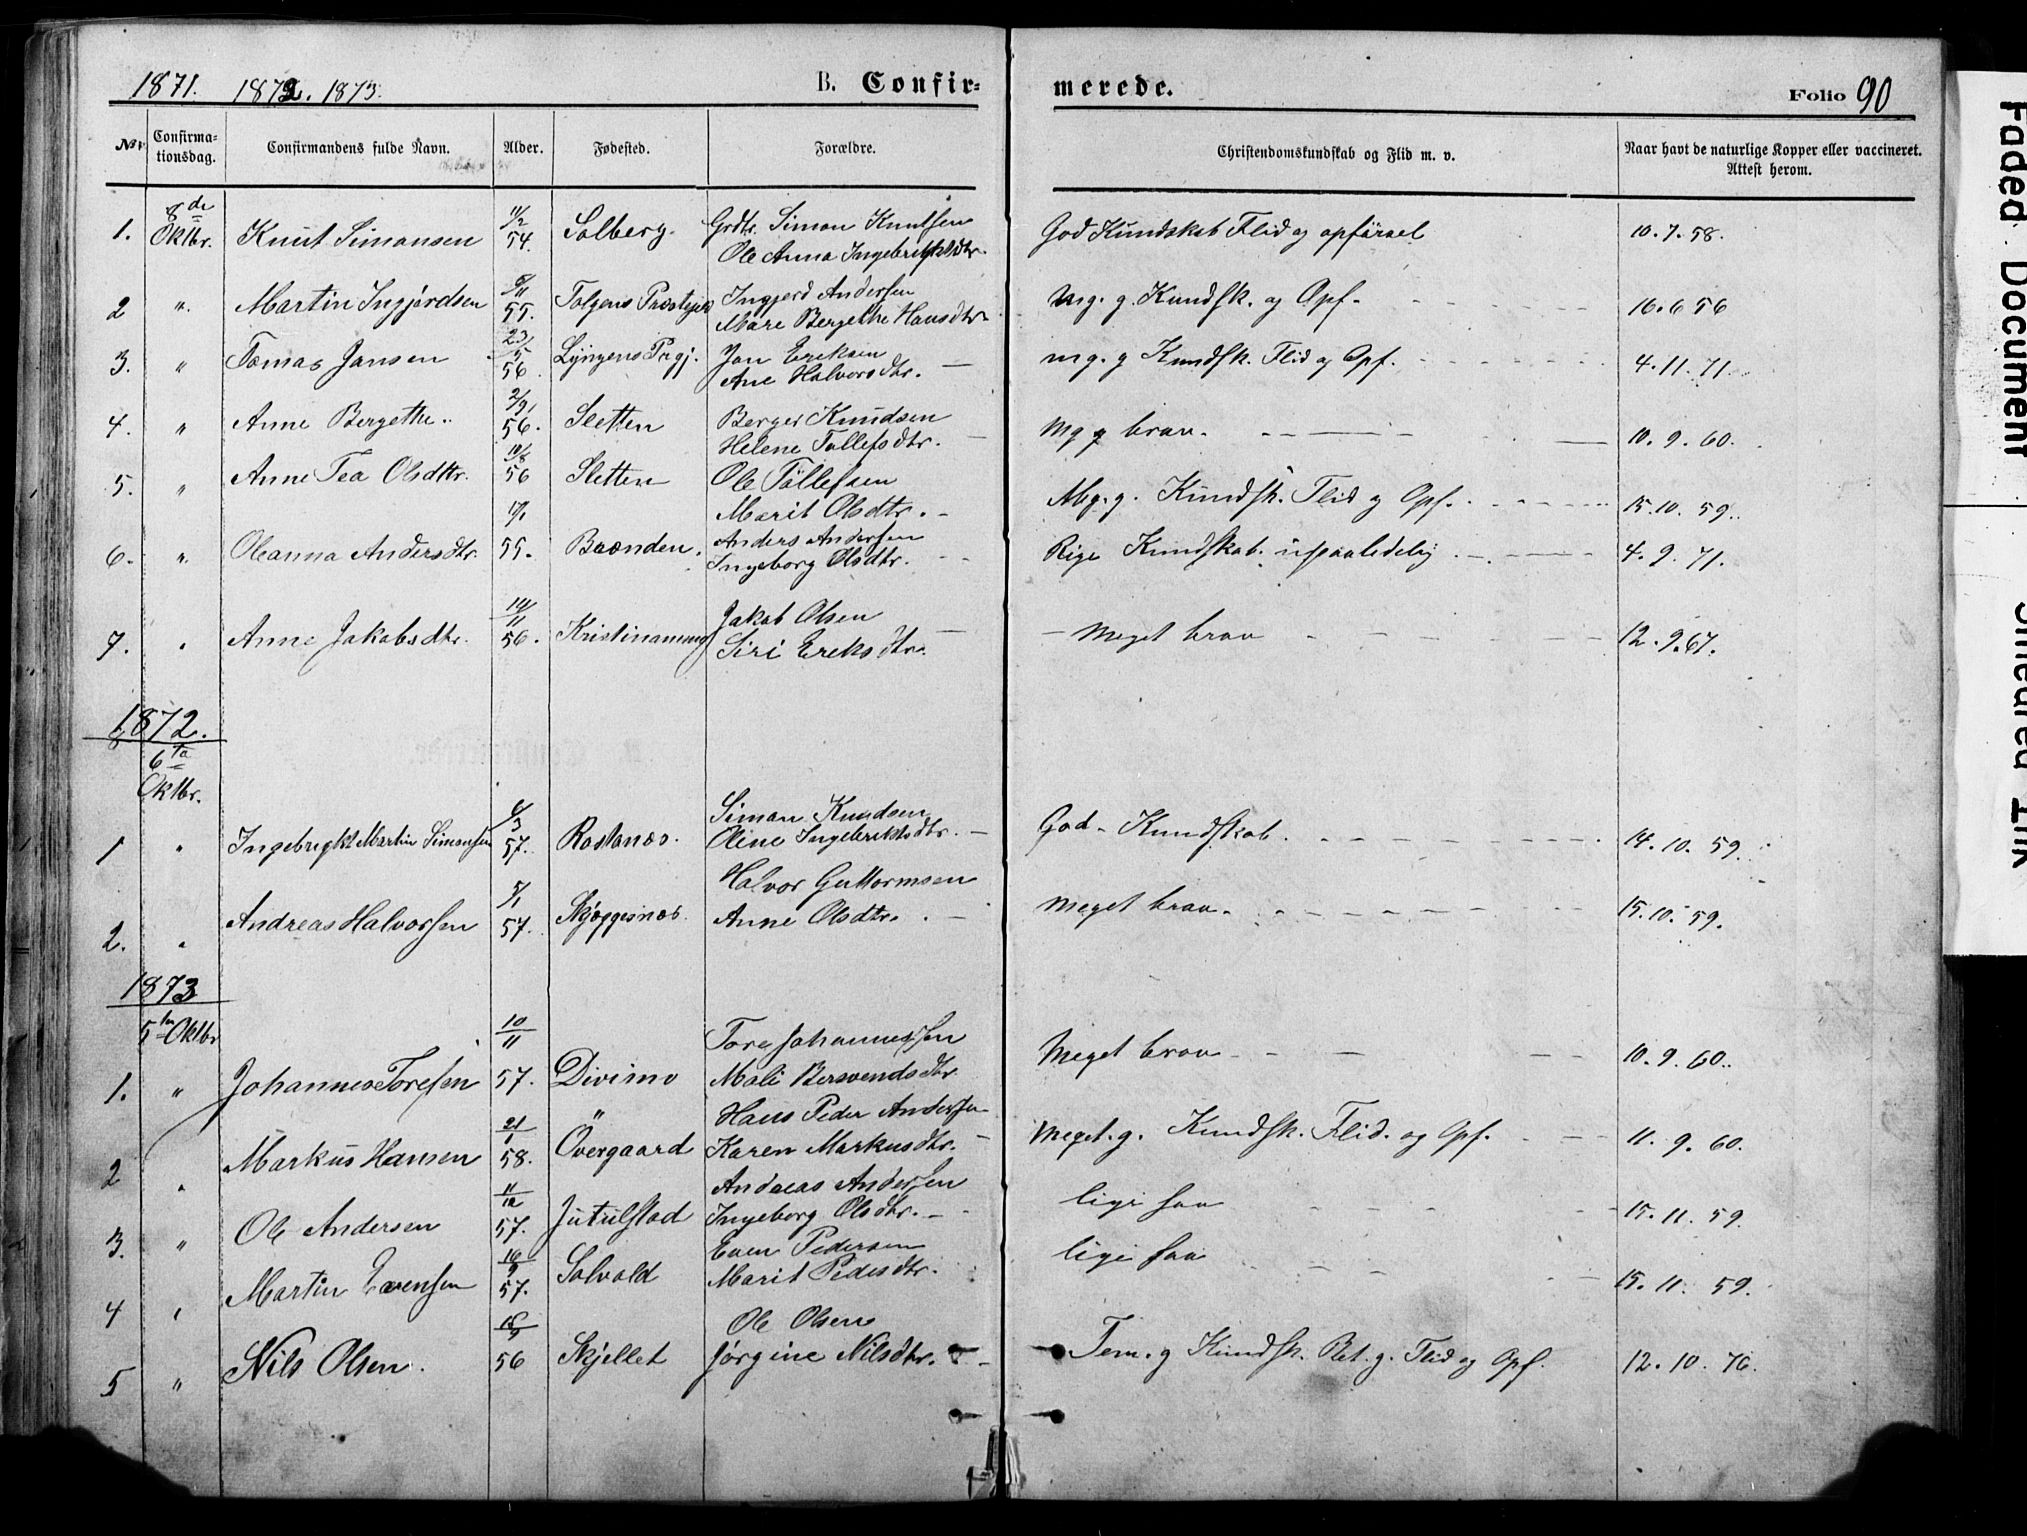 1871. 1872. 1873.
B. Confir-
merede.
Folio 90
No.
Confirma-
tionsdag.
Confirmandens fulde Navn.
Alder.
Fødested.
Forældre.
Christendomskundskab og Flid m. v.
Naar havt de naturlige Kopper eller vaccineret.
Attest herom.
8de
Oktbr.
1. Knut Simonsen 11/2 54. Solberg. Grdbr. Simon Knutsen
Ole Anna Ingebrigtsdtr.
God Kundskab Flid og opførsel 10.7.58.
2 ". Martin Ingjørdsen 55. Tolgens Præstgj Ingjerd Andersen
Mare Bergethe Hansdtr.
Mg. g. Kundsk. og Opf. 16.6 56
3. " Tomas Jansen 23/5 56 Lÿngens Prgj. Jon Eriksen
Ane Halvorsdtr.
mg. g Kundsk. Flid og Opf. 4.11.71.
4. " Anne Bergethe 2/9 56. Sletten Berger Knudsen
Helene Tollefsdtr.
Mg g brav. 10.9.60.
5. " Anne Tea Olsdtr. 10/8 56 Sletten Ole Tollefsen
Marit Olsdtr.
Mg. g. Kundsk. Flid og Opf. 15.10.59.
6. ". Oleanna Andersdtr. 55. Brænden. Anders Andersen
Ingeborg Olsdtr.
Rige Kundskab. upaaledelig 4.9.71.
7. Anne Jakobsdtr. 56. Kristinammo Jakob Olsen
Siri Ereksdtr.
Meget brav 12.9.67.
1872.
6te
Oktbr.
1 " Ingebrigkt Martin Simonsen 6/3 57. Rostanæs. Simon Knudsen
Oline Ingebriktsdtr.
God Kundskab. 14.10.59.
2. " Andreas Halvorsen 5/1 57. Skjæggesnæs. Halvor Guttormsen
Anne Olsdtr.
Meget brav. 15.10.59.
1873
5te Oktbr
1. " Johannes Toresen 10/11 57. Divimo Tore Johannessen
Mali Bersvendsdtr
Meget brav 10.9.60.
2 " Markus Hansen 21/1 58. Overgaard Hans Peder Andersen
Karen Markusdtr.
Meget. g. Kundsk. Flid. og Opf. 11.9.60.
3. " Ole Andersen 11/12 57. Jutulstad Andreas Andersen
Ingeborg Olsdtr.
lige saa 15.11.59.
4 Martin Evensen 16/9 57. Solvold Even Pedersen
Marit Pedersdtr.
lige saa 15.11.59.
5 " Nils Olsen. 56 Skjellet Ole Olsen
Jørgine Nilsdtr.
Tem. g Kundsk. Ret. g. Flid og Opf. 12.10.76.
Faded Document
Smeared Ink